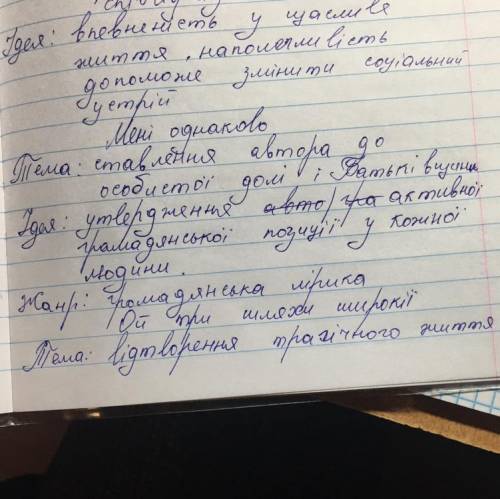 Ідея: впевненість у щасливе
життя, наполегливість
допоможе змінити соціальний
устрій
Мені однаково
Тема: ставлення автора до
особистої долі і Батьківщини
Ідея: утвердження авто/гра активної
громадянської позиції у кожної
людини.
Жанр: громадянська лірика
Ой три шляхи широкії
Тема: відтворення трагічного життя